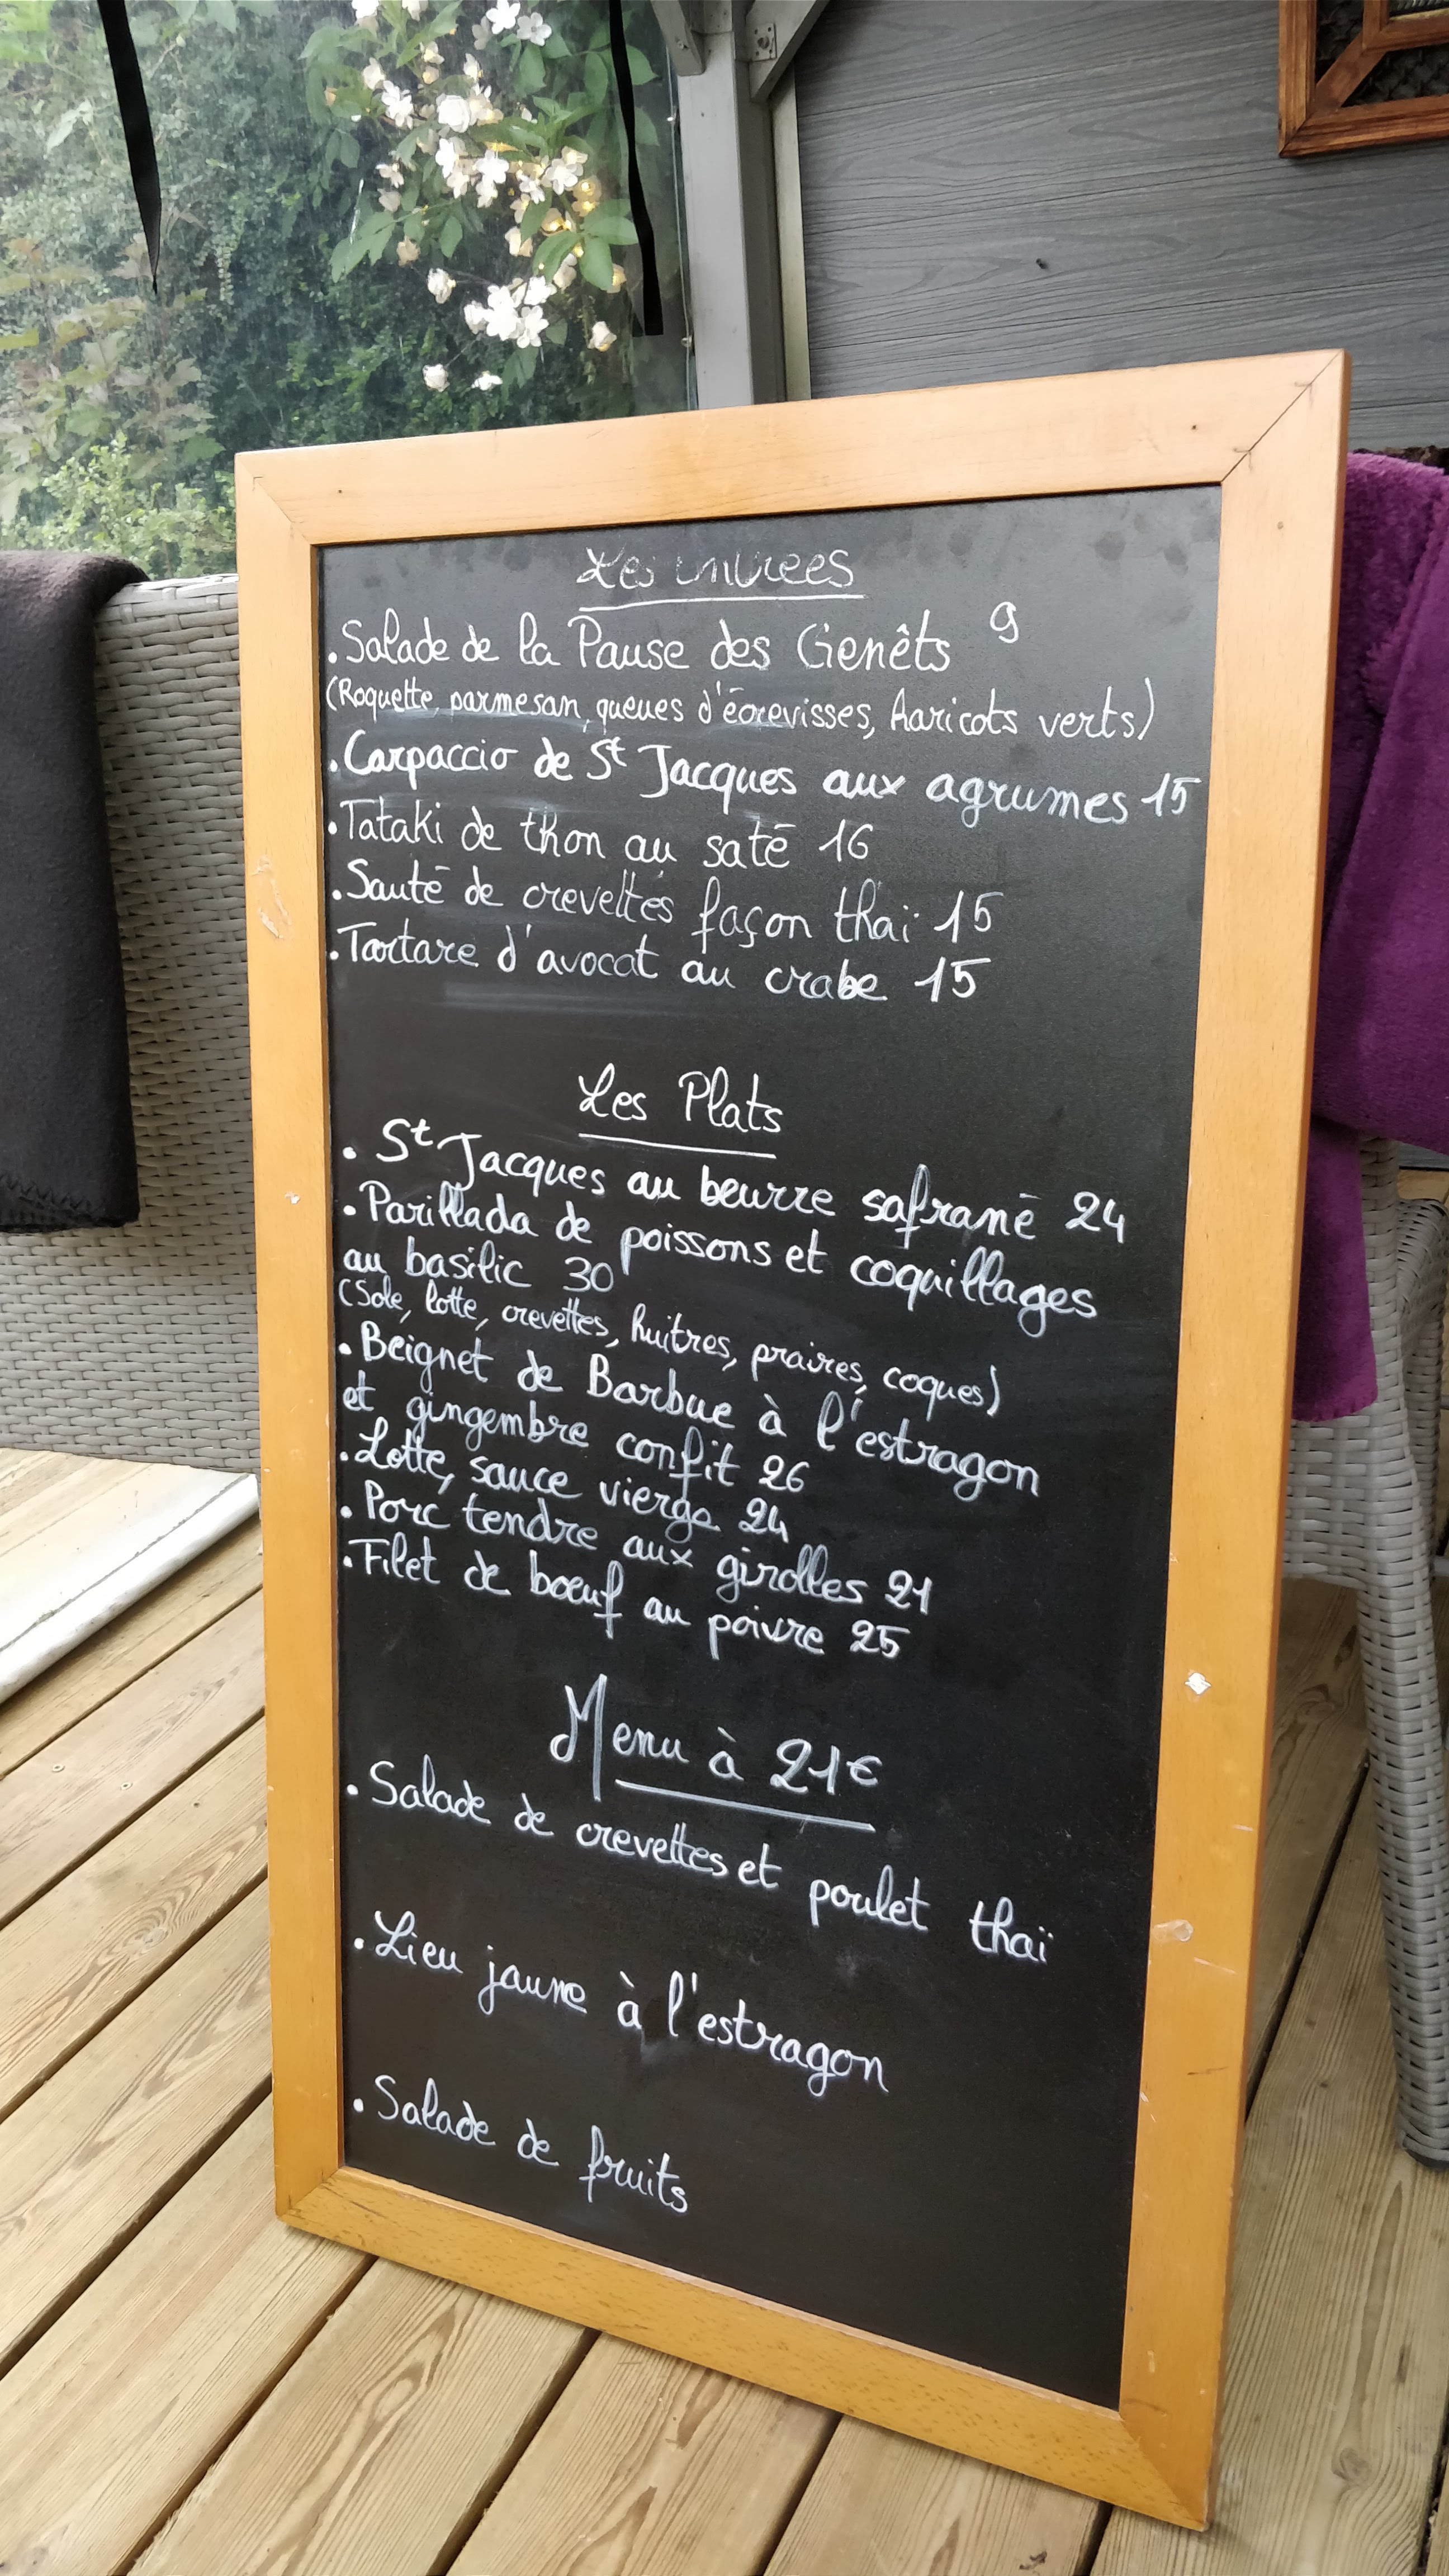 Les entrées
. Salade de la Pause des Genêts 9
(Roquette, parmesan, queues d'écrevisses, haricots verts)
. Carpaccio de St Jacques aux agrumes 15
. Tataki de thon au saté 16
. Sauté de crevettes façon thaï 15
. Tartare d'avocat au crabe 15
Les Plats
. St Jacques au beurre safrané 24
. Parillada de poissons et coquillages
au basilic 30
(Sole, lotte, crevettes, huitres, praires, coques)
. Beignet de Barbue à l'estragon
et gingembre confit 26
. Lotte, sauce vierge 24
. Porc tendre aux girolles 21
. Filet de bœuf au poivre 25
Menu à 21€
. Salade de crevettes et poulet thaï
. Lieu jaune à l'estragon
. Salade de fruits